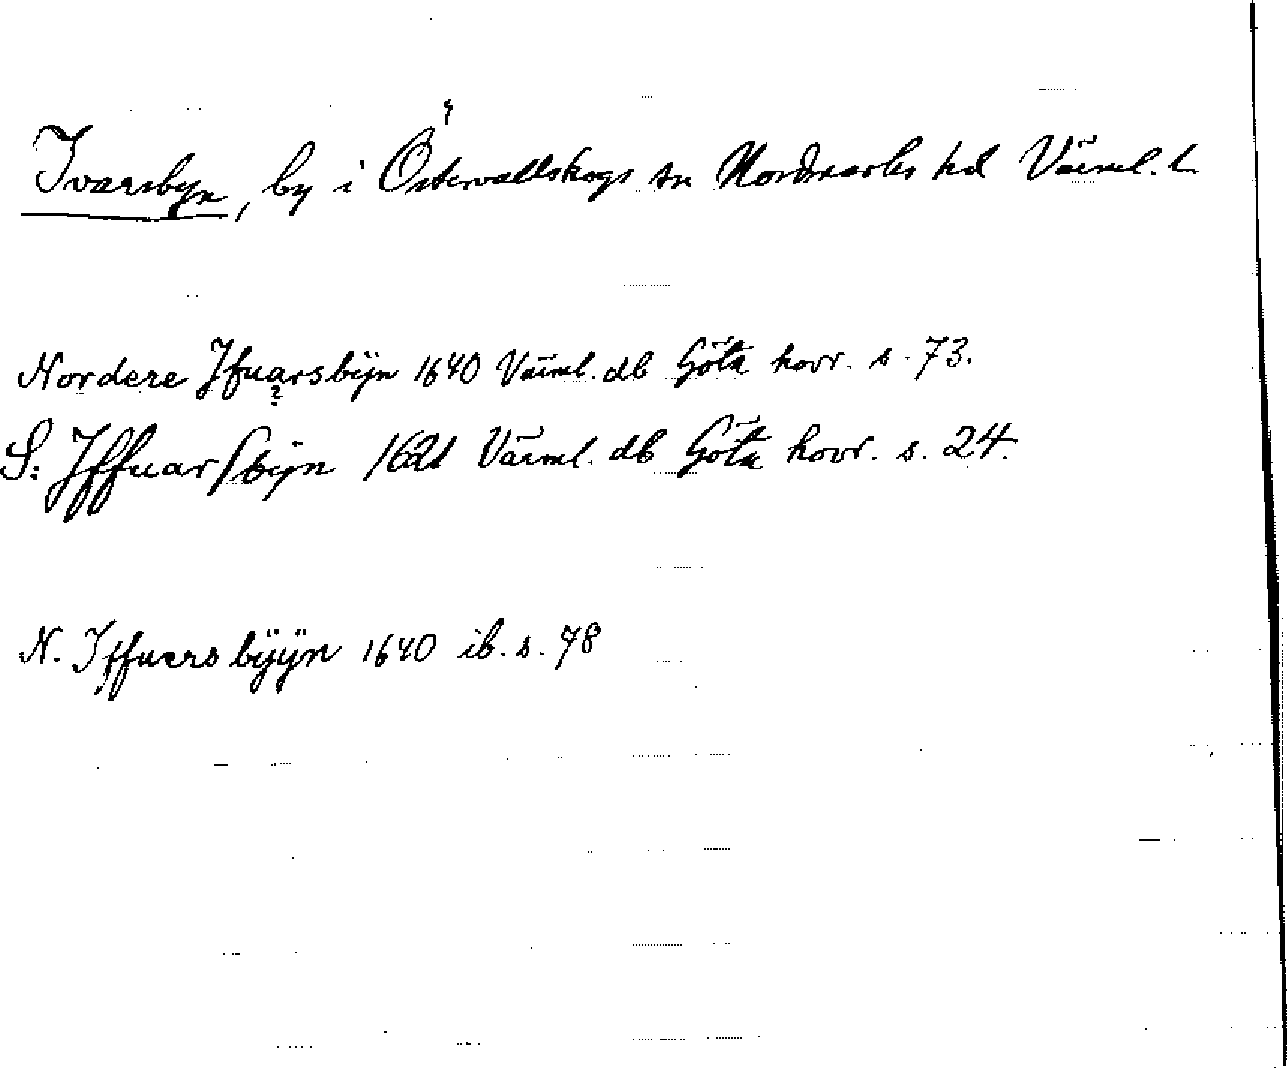 Ivarsbyn, by i Östervallskogs sn Nordmarks hd Värml. l.
Nordere Jfuarsbÿn 1640 Värml. db Göta hovr. s. 73.
S: Iffuarsbÿn 1621 Värml. db Göta hovr. s. 24.
N. Iffuersbÿÿn 1640 ib. s. 78